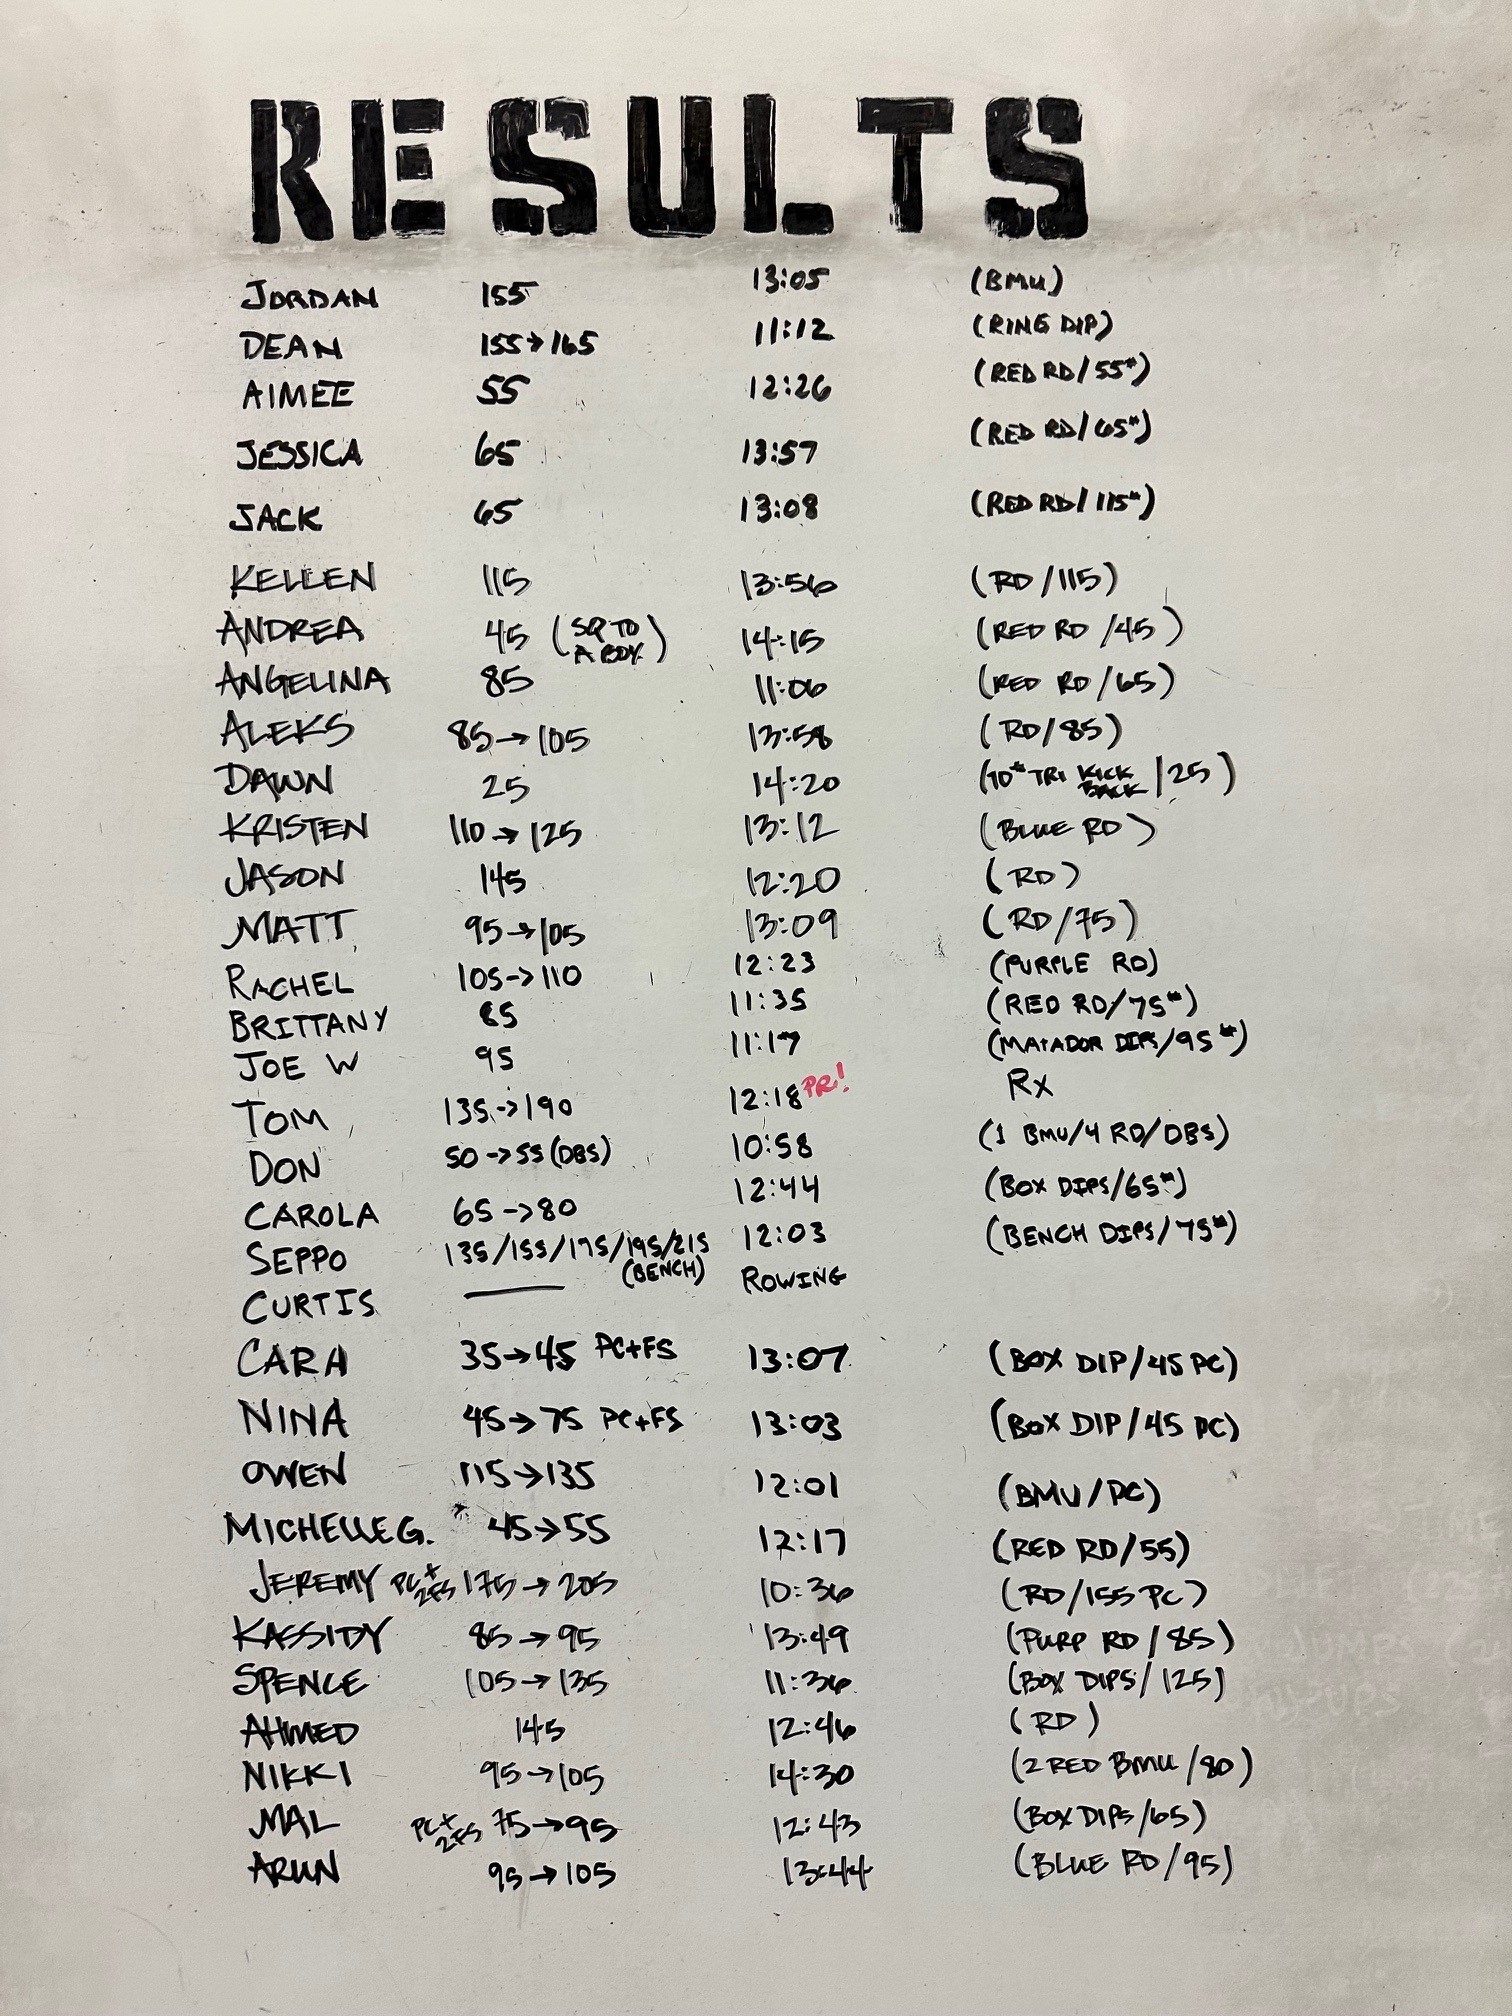 RESULTS
JORDAN 155 13:05 (BMU)
DEAN 155→165 11:12 (RING DIP)
AIMEE 55 12:26 (RED RD/55#)
JESSICA 65 13:57 (RED RD/65#)
JACK 65 13:08 (RED RD/115#)
KELLEN 115 13:56 (RD/115)
ANDREA 45 (SQ TO A BOX) 14:15 (RED RD/45)
ANGELINA 85 11:06 (RED RD/65)
ALEKS 85→105 13:58 (RD/85)
DAWN 25 14:20 (10# TRI KICK BACK/25)
KRISTEN 110→125 13:12 (BLUE RD)
JASON 145 12:20 (RD)
MATT 95→105 13:09 (RD/75)
RACHEL 105->110 12:23 (PURPLE RD)
BRITTANY 85 11:35 (RED RD/75#)
JOE W 95 11:17 (MATADOR DIPS/95#)
TOM 135->190 12:18 PR! Rx
DON 50->55 (DBS) 10:58 (1 BMU/4 RD/DBS)
CAROLA 65->80 12:44 (BOX DIPS/65#)
SEPPO 135/155/175/195/215 (BENCH) 12:03 (BENCH DIPS/75#)
CURTIS — ROWING
CARA 35→45 PC+FS 13:07 (BOX DIP/45 PC)
NINA 45→75 PC+FS 13:03 (BOX DIP/45 PC)
OWEN 115→135 12:01 (BMU/PC)
MICHELLE G. 45→55 12:17 (RED RD/55)
JEREMY PC+2FS 175→205 10:36 (RD/155 PC)
KASSIDY 85→95 13:49 (PURP RD/85)
SPENCE 105→135 11:36 (BOX DIPS/125)
AHMED 145 12:46 (RD)
NIKKI 95→105 14:30 (2 RED BMU/80)
MAL PC+2FS 75→95 12:43 (BOX DIPS/65)
ARUN 95→105 13:44 (BLUE RD/95)